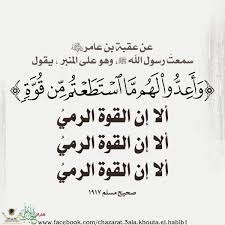 عن عقبة بن عامر ﷺ
سمعت رسول الله ﷺ، وهو على المنبر، يقول
﴿وَأَعِدُّوا۟ لَهُم مَّا ٱسْتَطَعْتُم مِّن قُوَّةٍ﴾
ألا إن القوة الرميُ
ألا إن القوة الرميُ
ألا إن القوة الرميُ
صحيح مسلم ١٩١٧
www.facebook.com/chazarat.3ala.khouta.el.habib1